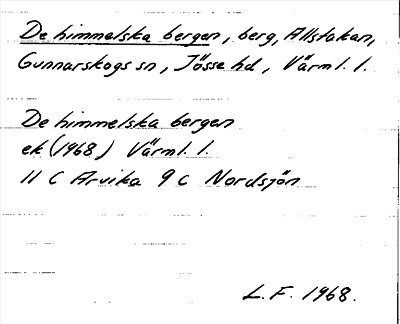 De himmelska bergen, berg, Allstakan,
Gunnarskogs sn, Jösse hd, Värml. l.
De himmelska bergen
ek (1968) Värml. l.
11 C Arvika 9 c Nordsjön
L.F. 1968.